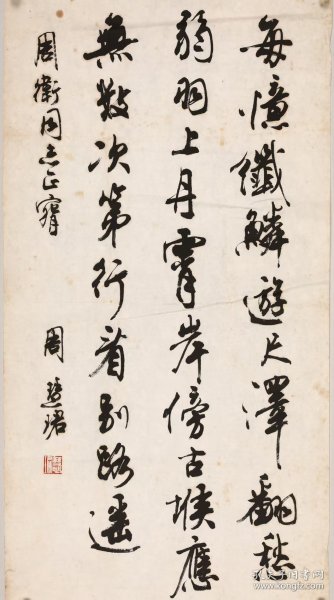 每憶纖鱗遊尺澤翻愁
弱羽上丹霄岸傍古堠應
無數次第行看別路遙
周衛同志正
周慧珺